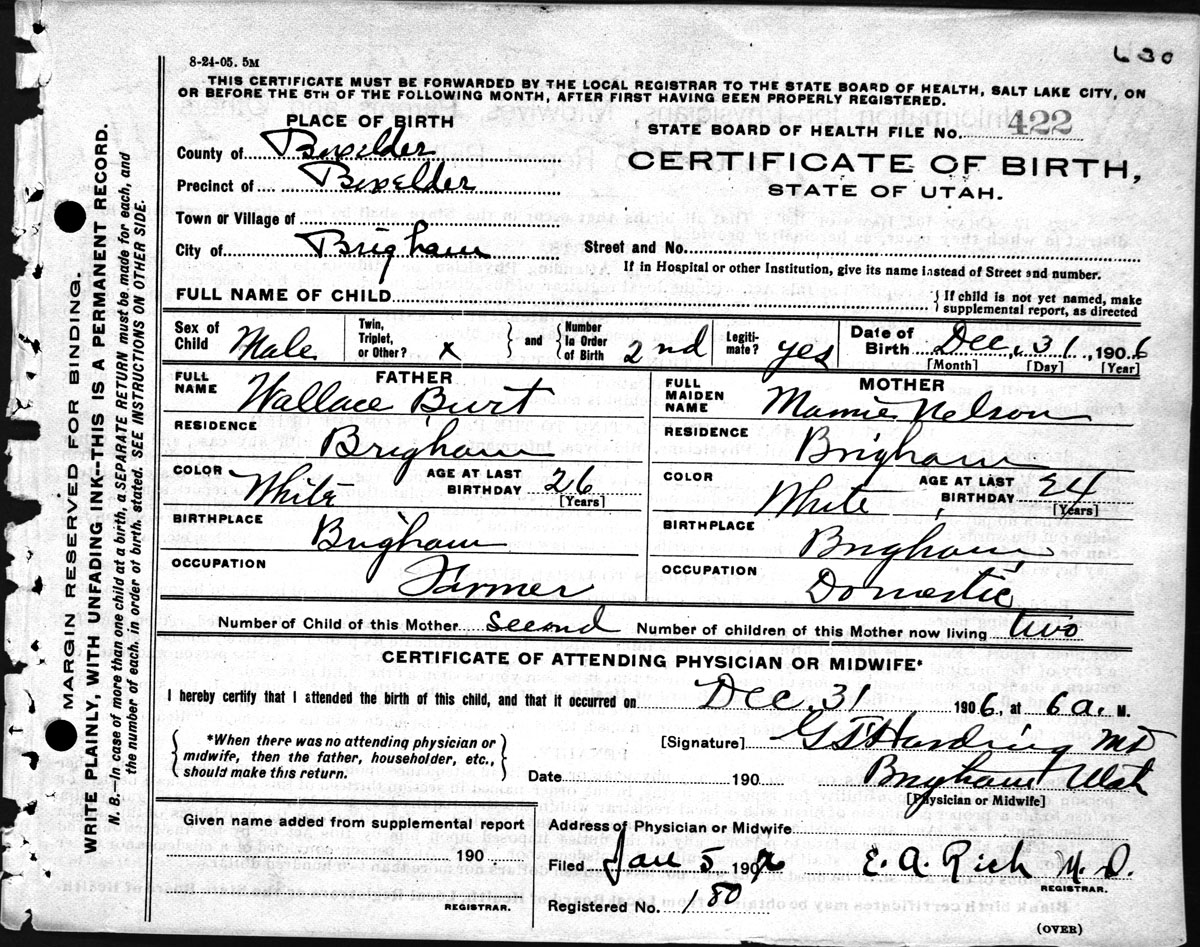 630
8-24-05. 5M
THIS CERTIFICATE MUST BE FORWARDED BY THE LOCAL REGISTRAR TO THE STATE BOARD OF HEALTH, SALT LAKE CITY, ON
OR BEFORE THE 5TH OF THE FOLLOWING MONTH, AFTER FIRST HAVING BEEN PROPERLY REGISTERED.
PLACE OF BIRTH
STATE BOARD OF HEALTH FILE No. 422
County of Boxelder
CERTIFICATE OF BIRTH,
Precinct of Boxelder
STATE OF UTAH.
Town or Village of
City of Brigham Street and No.
If in Hospital or other Institution, give its name instead of Street and number.
FULL NAME OF CHILD { If child is not yet named, make supplemental report, as directed
Sex of Child Male Twin, Triplet, or Other? x } and { Number in Order of Birth 2nd Legiti- mate? yes Date of Birth Dec. 31, 1906
[Month] [Day] [Year]
FATHER
FULL NAME Wallace Burt
RESIDENCE Brigham
COLOR White AGE AT LAST BIRTHDAY 26
[Years]
BIRTHPLACE Brigham
OCCUPATION Farmer
MOTHER
FULL MAIDEN NAME Mamie Nelson
RESIDENCE Brigham
COLOR White AGE AT LAST BIRTHDAY 24
[Years]
BIRTHPLACE Brigham
OCCUPATION Domestic
Number of Child of this Mother second Number of children of this Mother now living two
CERTIFICATE OF ATTENDING PHYSICIAN OR MIDWIFE*
I hereby certify that I attended the birth of this child, and that it occurred on Dec. 31 1906, at 6 a. M.
{ *When there was no attending physician or
midwife, then the father, householder, etc.,
should make this return. }
[Signature] Harding MD
Date 190 Brigham Utah
[Physician or Midwife]
Given name added from supplemental report
190
REGISTRAR.
Address of Physician or Midwife
Filed Jan 5 190 E. A. Rich M. D.
REGISTRAR.
Registered No. 180
(OVER)
MARGIN RESERVED FOR BINDING.
WRITE PLAINLY, WITH UNFADING INK--THIS IS A PERMANENT RECORD.
N. B.—In case of more than one child at a birth, a SEPARATE RETURN must be made for each, and
the number of each, in order of birth, stated. SEE INSTRUCTIONS ON OTHER SIDE.